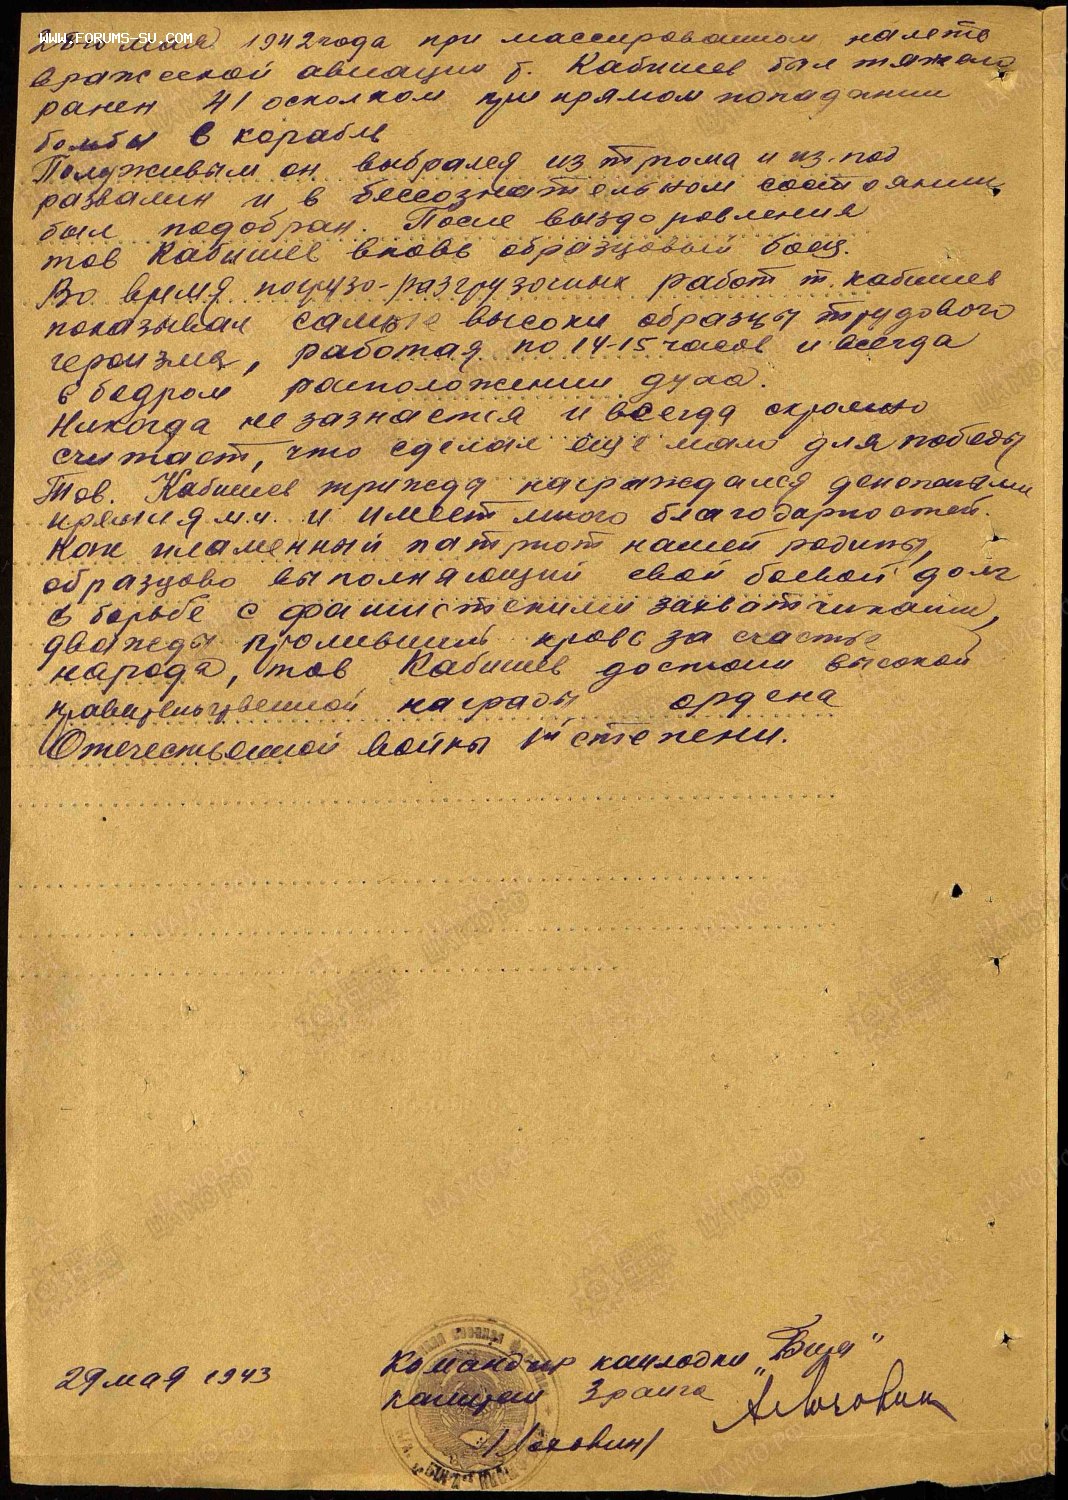 WWW.FORUMS-SU.COM
мая 1942 года при массированном налете
вражеской авиации т. Кабишев был тяжело
ранен 41 осколком при прямом попадании
бомбы в корабль
Полуживым он выбрался из трюма и из-под
развалин и в бессознательном состоянии
был подобран. После выздоровления
тов Кабишев вновь образцовый боец.
Во время погрузо-разгрузочных работ т. Кабишев
показывал самые высоки образцы трудового
героизма, работая по 14-15 часов и всегда
в бодром расположении духа.
Никогда не зазнается и всегда скромно
считает, что сделал еще мало для победы
Тов. Кабишев трижды награждался денежными
премиями и имеет много благодарностей.
Как пламенный патриот нашей родины,
образцово выполняющий свой боевой долг
в борьбе с фашистскими захватчиками,
дважды проливший кровь за счастье
народа, тов Кабишев достоин высокой
правительственной награды ордена
Отечественной войны 1й степени.
29 мая 1943
Командир канлодки "Бира"
капитан 3 ранга